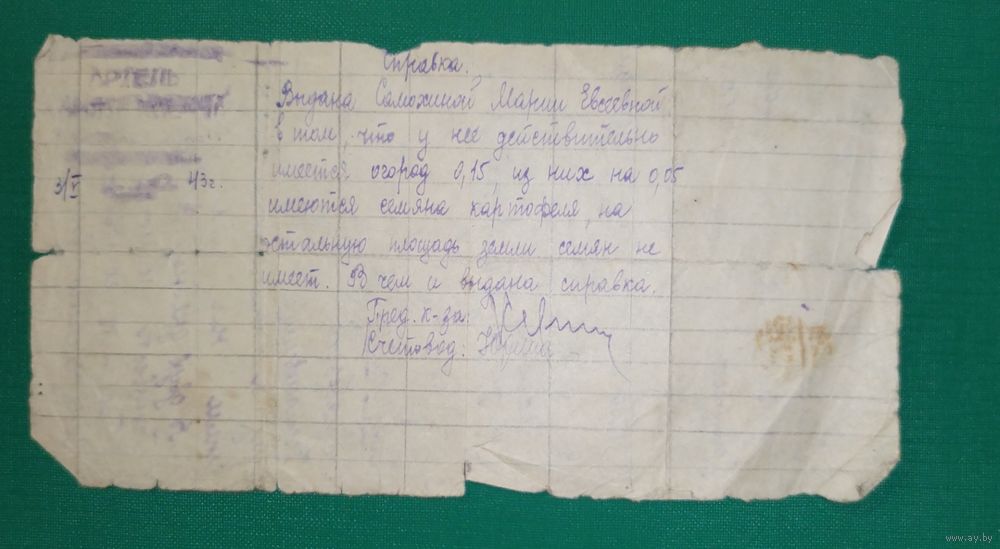 Справка.
АРТЕЛЬ
Выдана Самохиной Марии Евсеевной
в том, что у нее действительно
имеется огород 0,15, из них на 0,05
3/V 43 г.
имеются семяна картофеля, на
остальную площадь земли семян не
имеет. В чем и выдана справка.
Пред. к-за:
Счетовод:
www.ay.by